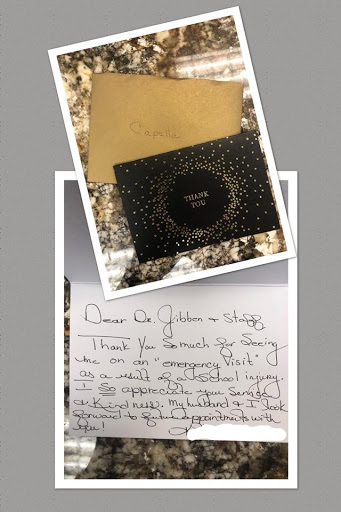 Capella
THANK
YOU
Dear Dr. Gibben + Staff
Thank You so much for Seeing
me on an "emergency Visit"
as a result of a School injury.
I So appreciate your Service
& Kindness. My husband & I look
forward to future appointments with
you!